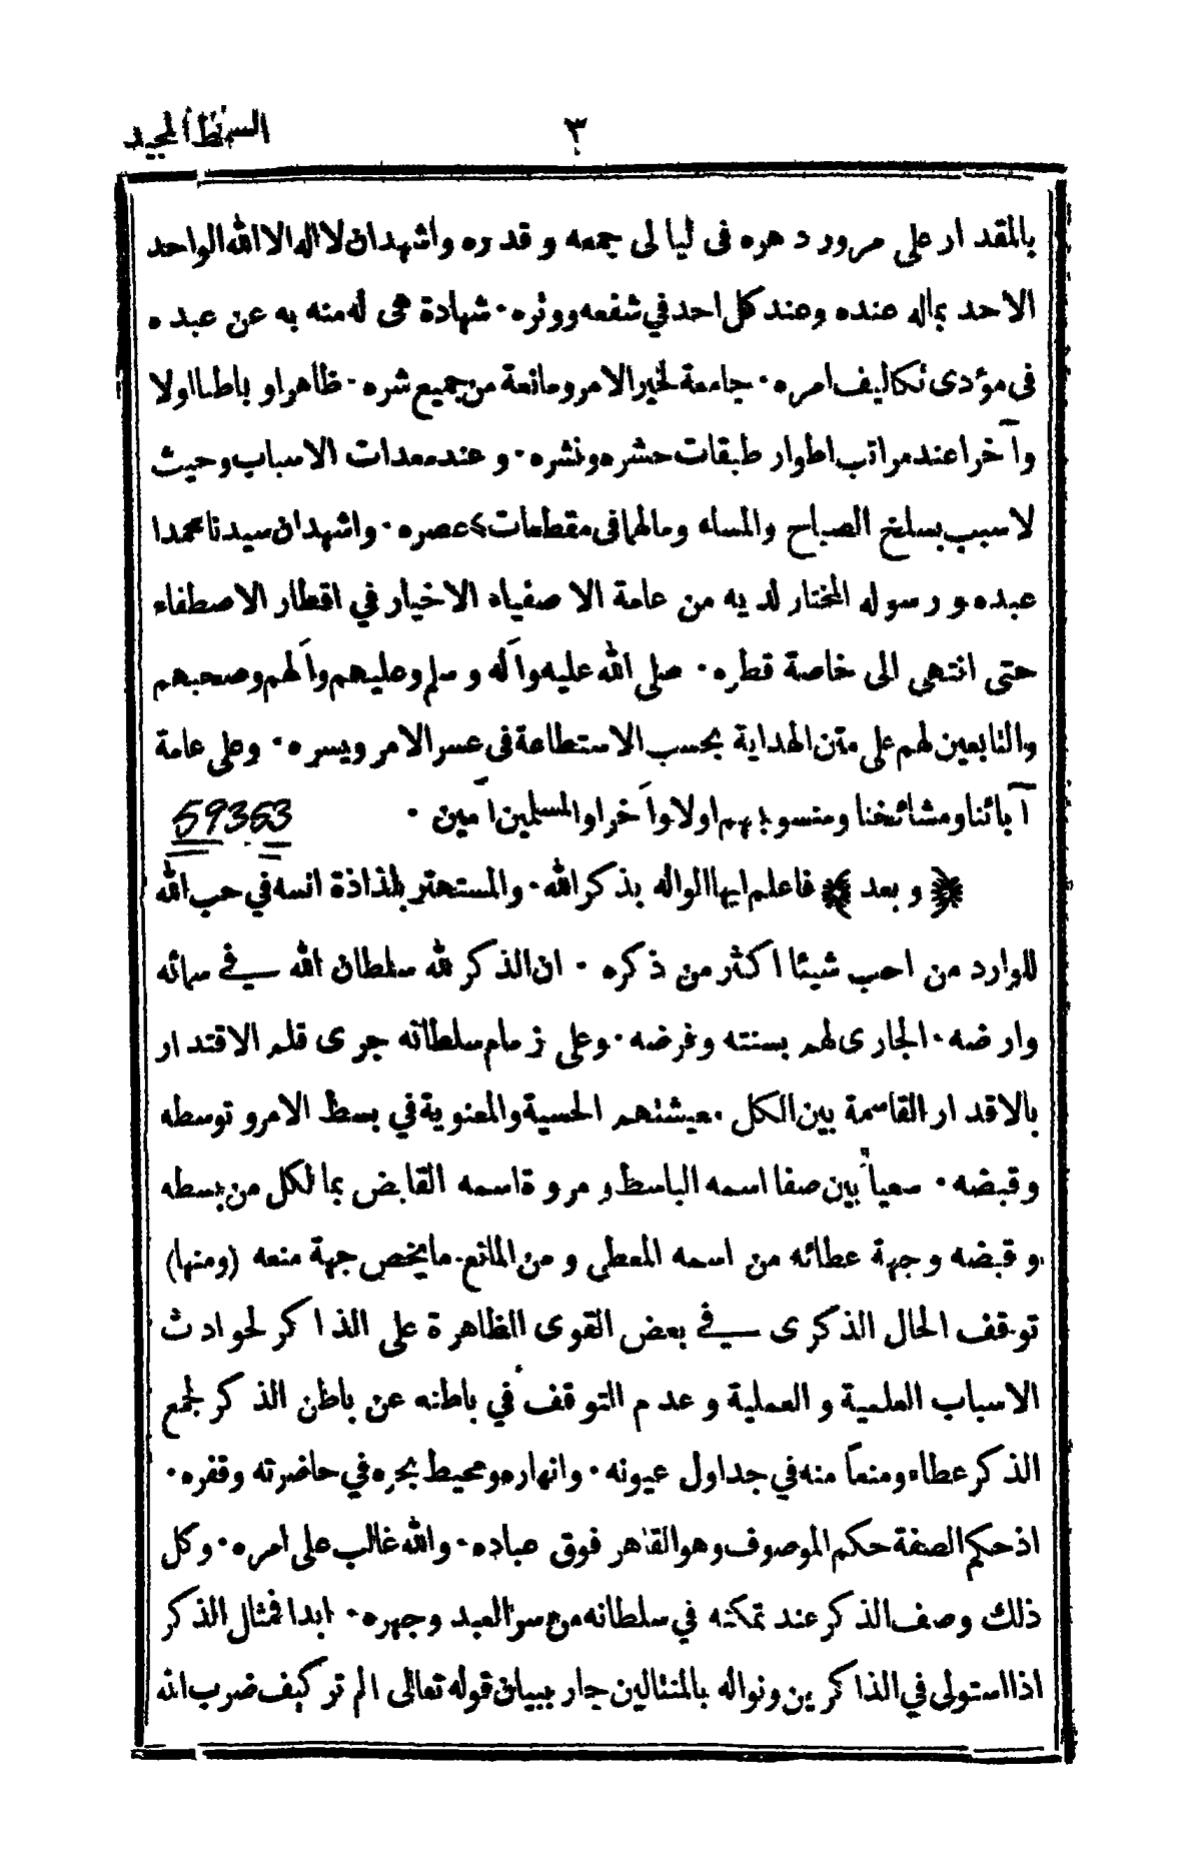 السمط المجيد
٣
بالمقدار على مرور دهره فى ليالى جمعه وقدره واشهدان لااله الاالله الواحد
الاحد بماله عنده وعند كل احد في شفعه ووتره ٠ شهادة هى له منه به عن عبده
فى مؤدى تكاليف امره ٠ جامعة لخير الامر ومانعة من جميع شره ٠ ظاهرا و باطنا اولا
وآخرا عند مراتب اطوار طبقات حشره ونشره ٠ و عند معدات الاسباب وحيث
لاسبب بسلخ الصباح والمساء ومالهما فى مقطعات عصره ٠ واشهدان سيدنا محمدا
عبده و رسوله المختار لديه من عامة الاصفياء الاخيار في اقطار الاصطفاء
حتى انتهى الى خاصة قطره ٠ صلى الله عليه وآله و سلم وعليهم وآلهم وصحبهم
والتابعين لهم على متن الهداية بحسب الاستطاعة فى عسر الامر ويسره ٠ وعلى عامة
آبائنا ومشائخنا ومنسوبيهم اولا وآخرا والمسلمين آمين ٠ 59353
و بعد فاعلم ايها الواله بذكر الله ٠ والمستهتر بلذاذة انسه في حب الله
للوارد من احب شيئا اكثر من ذكره ٠ ان الذكر لله سلطان الله في سمائه
وارضه ٠ الجارى لهم بسنته وفرضه ٠ وعلى زمام سلطانه جرى قلم الاقتدار
بالاقدار القاسمة بين الكل ٠ معيشتهم الحسية والمعنوية في بسط الامر و توسطه
وقبضه ٠ سعياً بين صفا اسمه الباسط و مروة اسمه القابض بما لكل من بسطه
و قبضه وجهة عطائه من اسمه المعطى و من المانع ٠ مايخص جهة منعه (ومنها)
توقف الحال الذكرى في بعض القوى الظاهرة على الذاكر لحوادث
الاسباب العلمية و العملية و عدم التوقف في باطنه عن باطن الذكر لجمع
الذكر عطاء ومنعاً منه في جداول عيونه ٠ وانهاره ومحيط بحره في حاضرته وقفره ٠
اذ حكم الصفة حكم الموصوف وهو القاهر فوق عباده ٠ والله غالب على امره ٠ وكل
ذلك وصف الذكر عند تمكنه في سلطانه من سر العبد وجهره ٠ ابدا فمثال الذكر
اذا استولى في الذاكرين ونواله بالمثالين جار ببيان قوله تعالى الم تر كيف ضرب الله